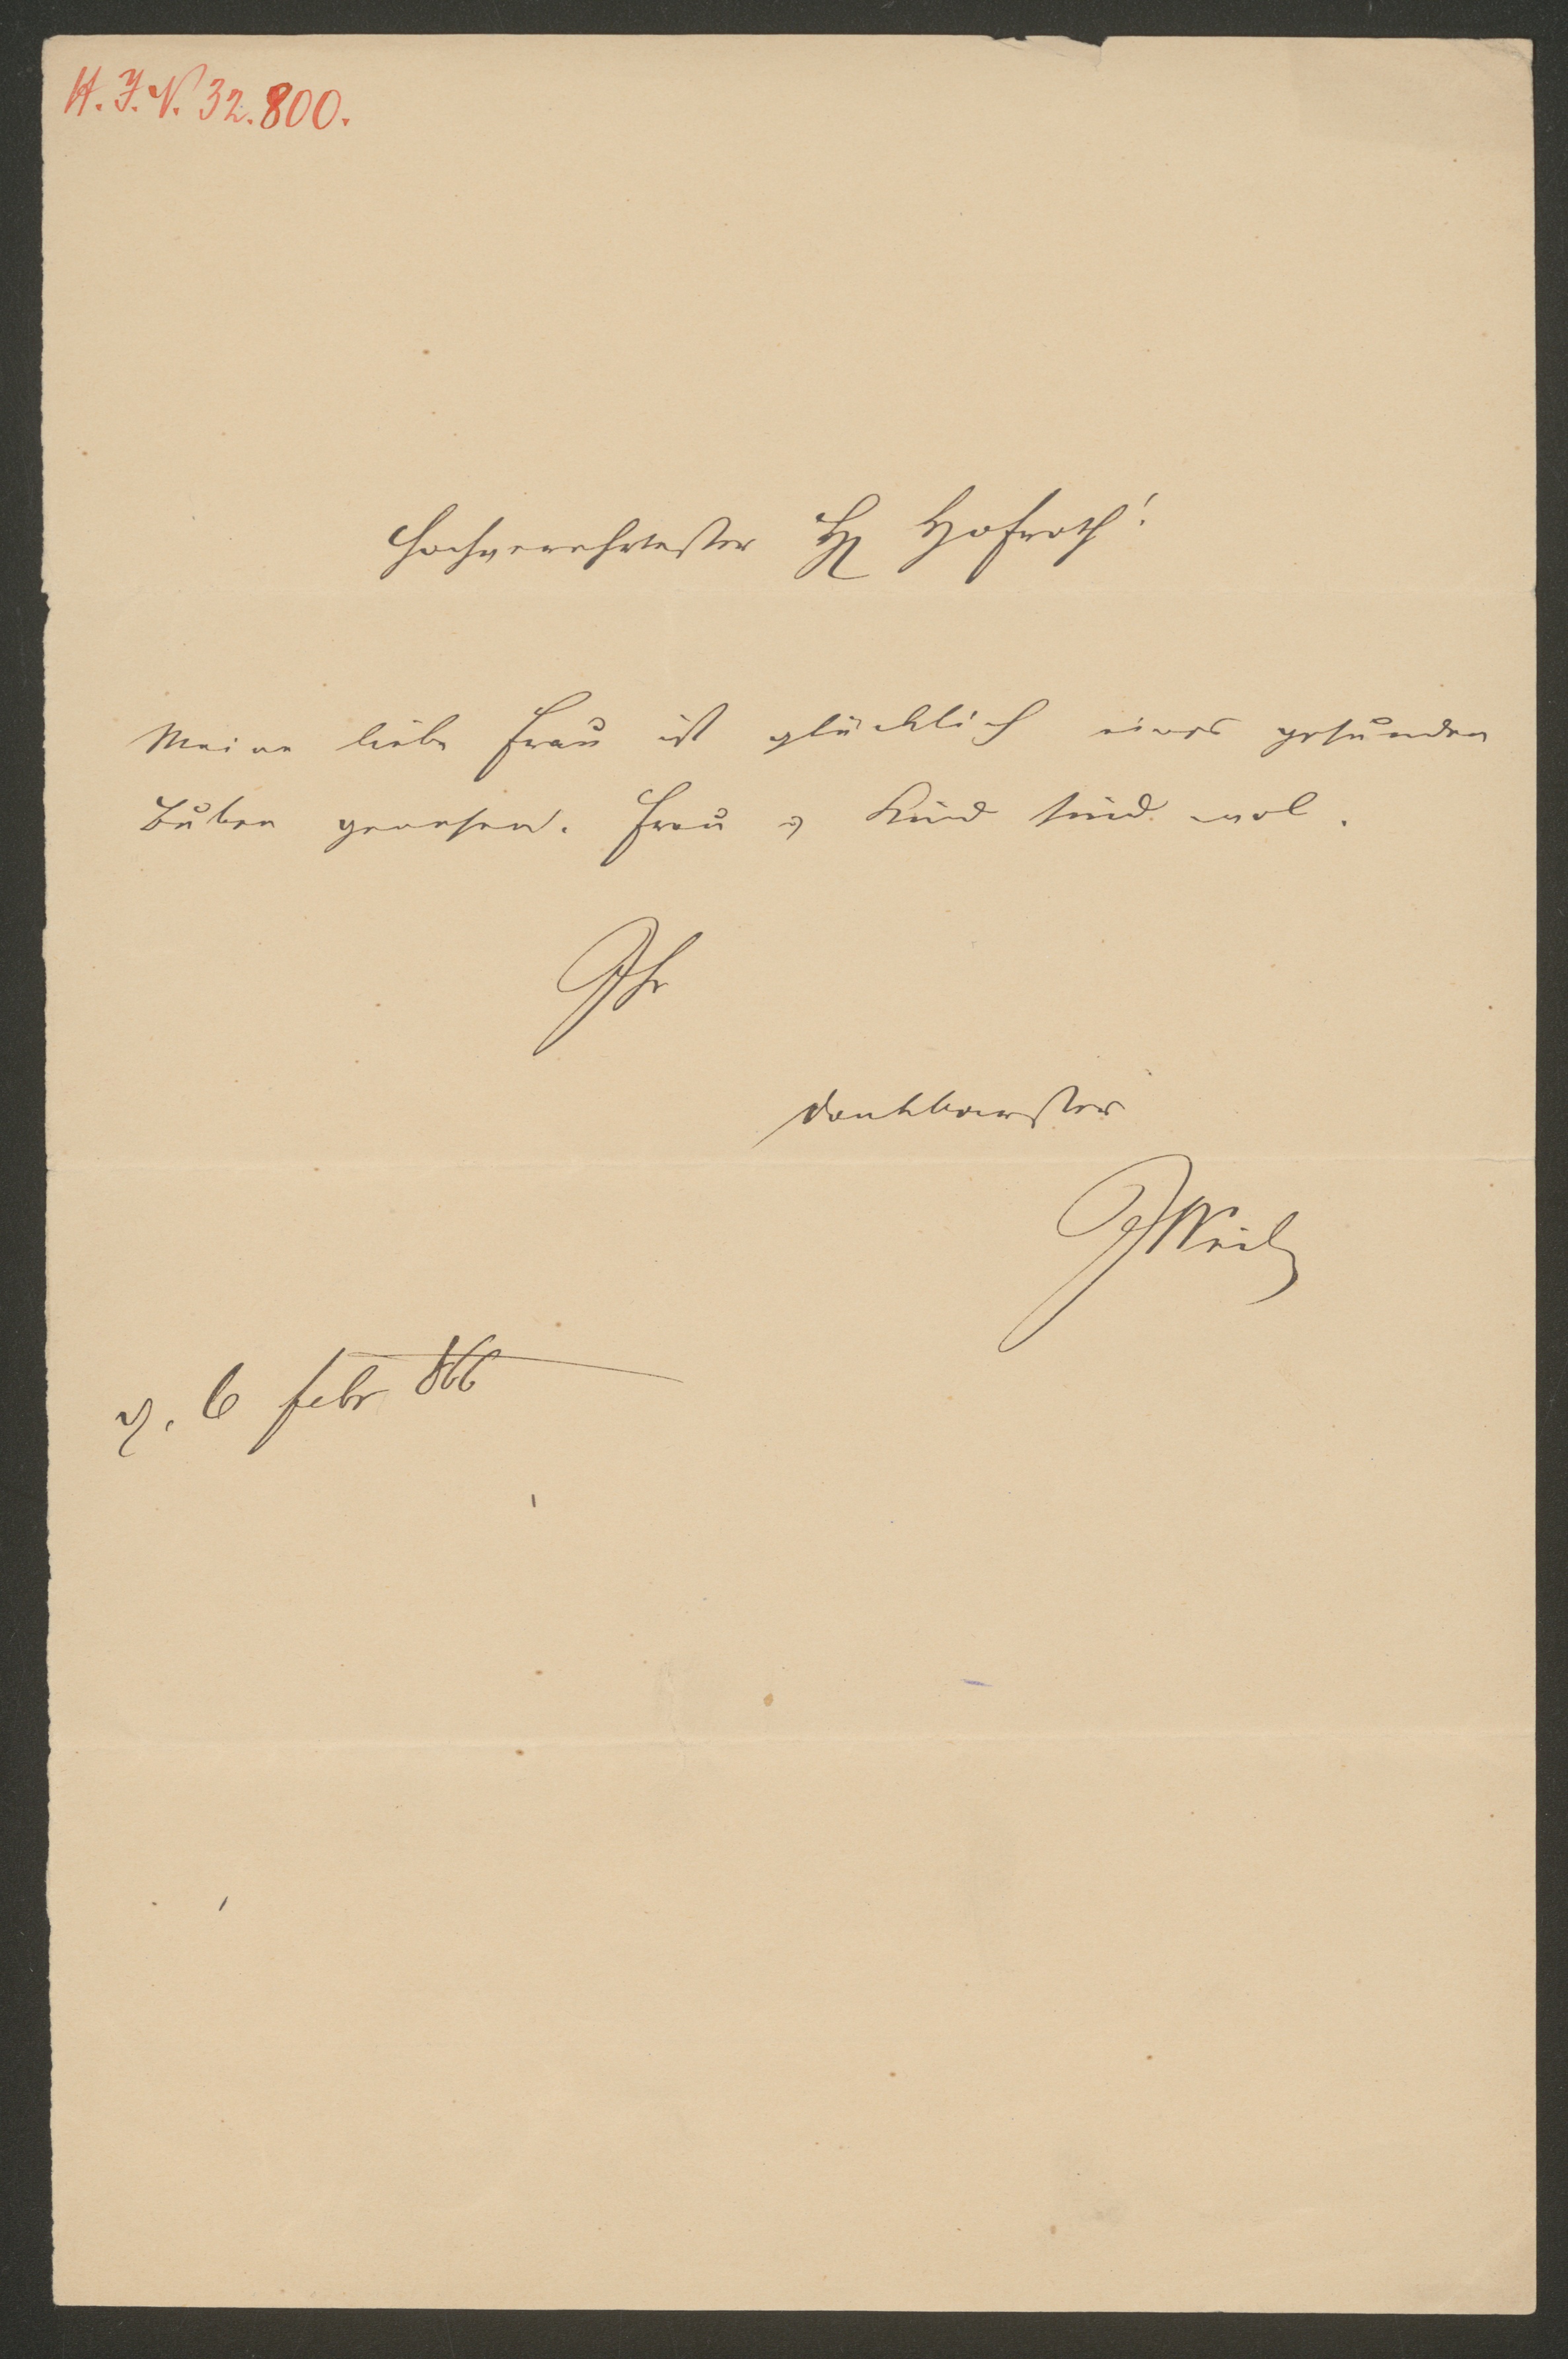 H. I. N. 32.800.
Hochverehrtester H Hofrath!
Meine liebe Frau ist glücklich eines gesunden
Buben genesen. Frau u Kind sind wol.
Ihr
dankbarster
JWeil
d. 6 febr 866